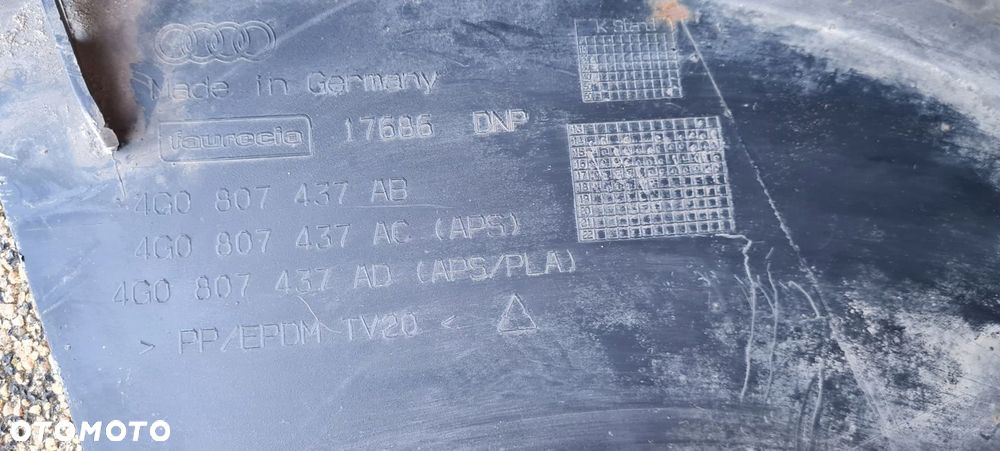 K-Stand
Made in Germany
faurecia 17686 DNP
4G0 807 437 AB
4G0 807 437 AC (APS)
4G0 807 437 AD (APS/PLA)
> PP/EPDM TV20 <
OTOMOTO